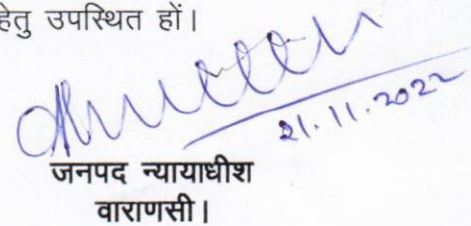 हेतु उपस्थित हों।
21.11.2022
जनपद न्यायाधीश
वाराणसी।